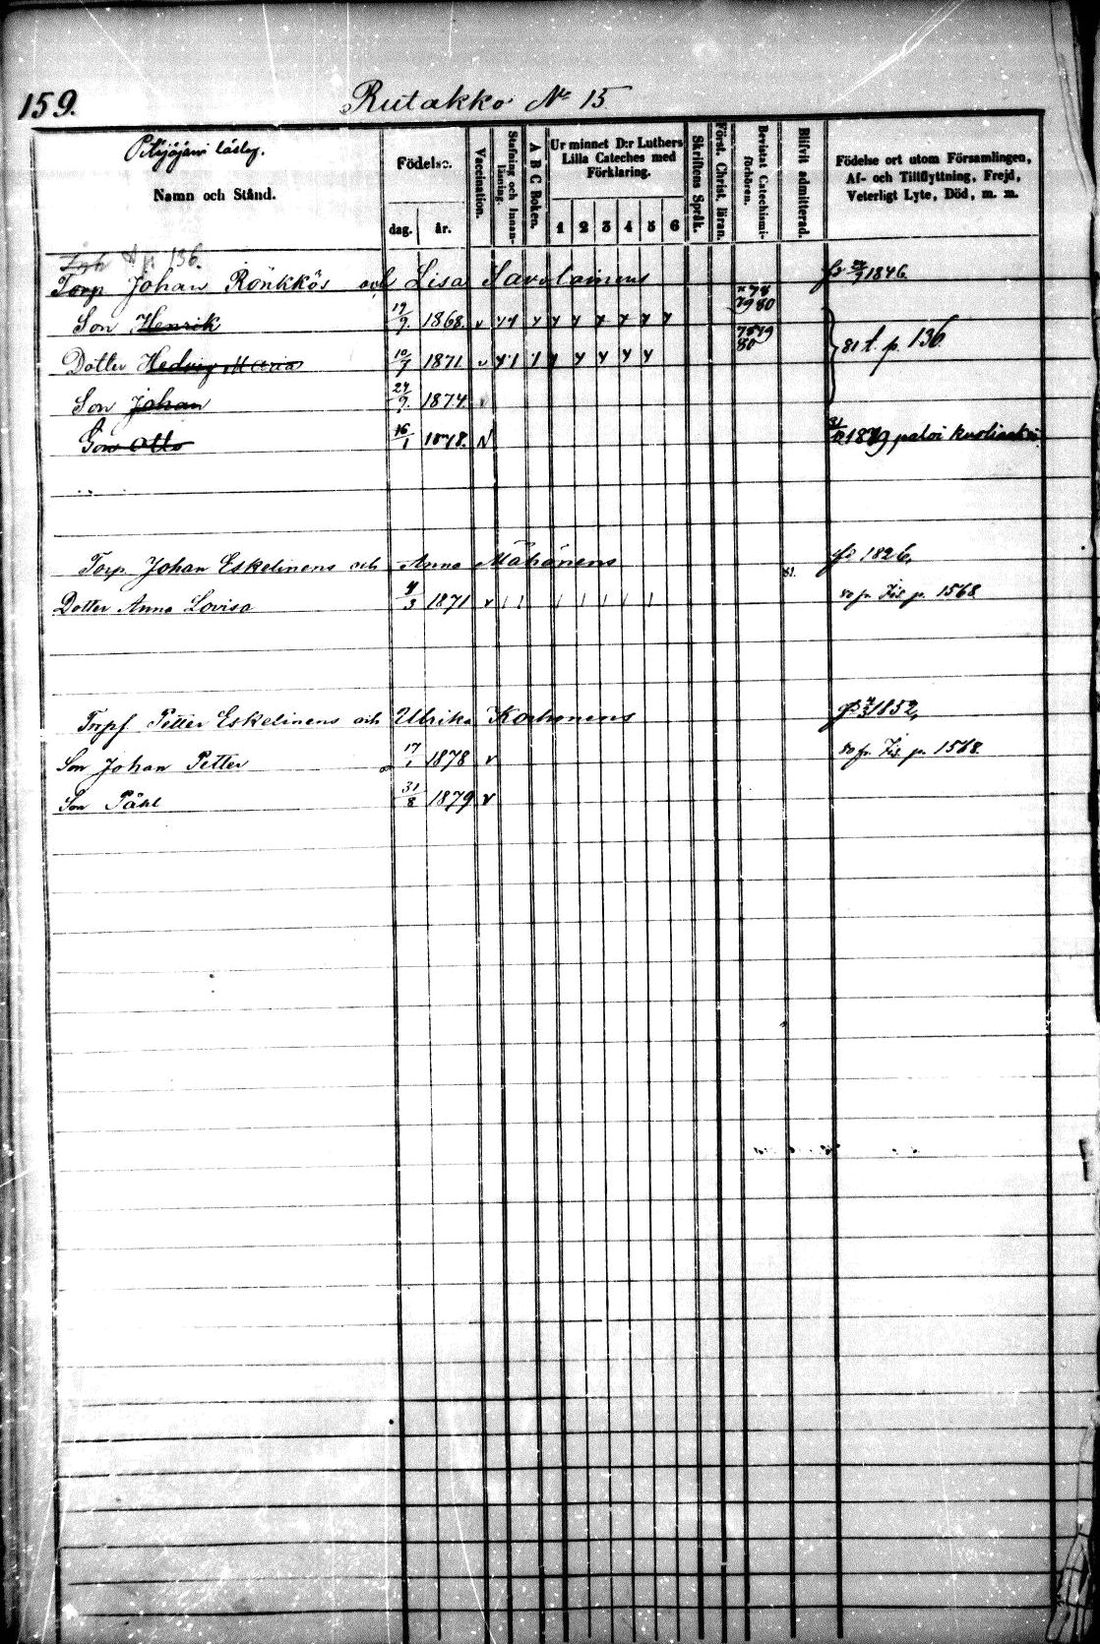 159.
Rutakko No 15
Pitkäjärvi läslag.
Namn och Stånd.
Födelse.
dag.
år.
Vaccination.
Stafning och Innanläsning.
A B C Boken.
Ur minnet D:r Luthers Lilla Cateches med Förklaring.
1 2 3 4 5 6
Skriftens Språk.
Först. Christ. läran.
Bevistat Catechismiförhören.
Blifvit admitterad.
Födelse ort utom Församlingen, Af- och Tillflyttning, Frejd, Veterligt Lyte, Död, m. m.
p 136.
Torp Johan Rönkkös och Lisa Savolainens 1846
Son Henrik 19/9. 1868. v 78 79 80
Dotter Hedvig Maria 10/7 1871 v 78 79 80 81 t. p. 136
Son Johan 24/9. 1874. v
Son Otto 16/1 1878. N 1879 paloi kuoliaaksi.
Torp. Johan Eskelinens och Anna Mähönens 1826,
Dotter Anna Lovisa 4/3 1871 v 81. 80 fr. Iis p. 1568
Torpf. Petter Eskelinens och Ulrika Korhonens 1852,
Son Johan Petter 17/1 1878 v 80 fr. Iis p. 1568
Son Påhl 31/8 1879 v